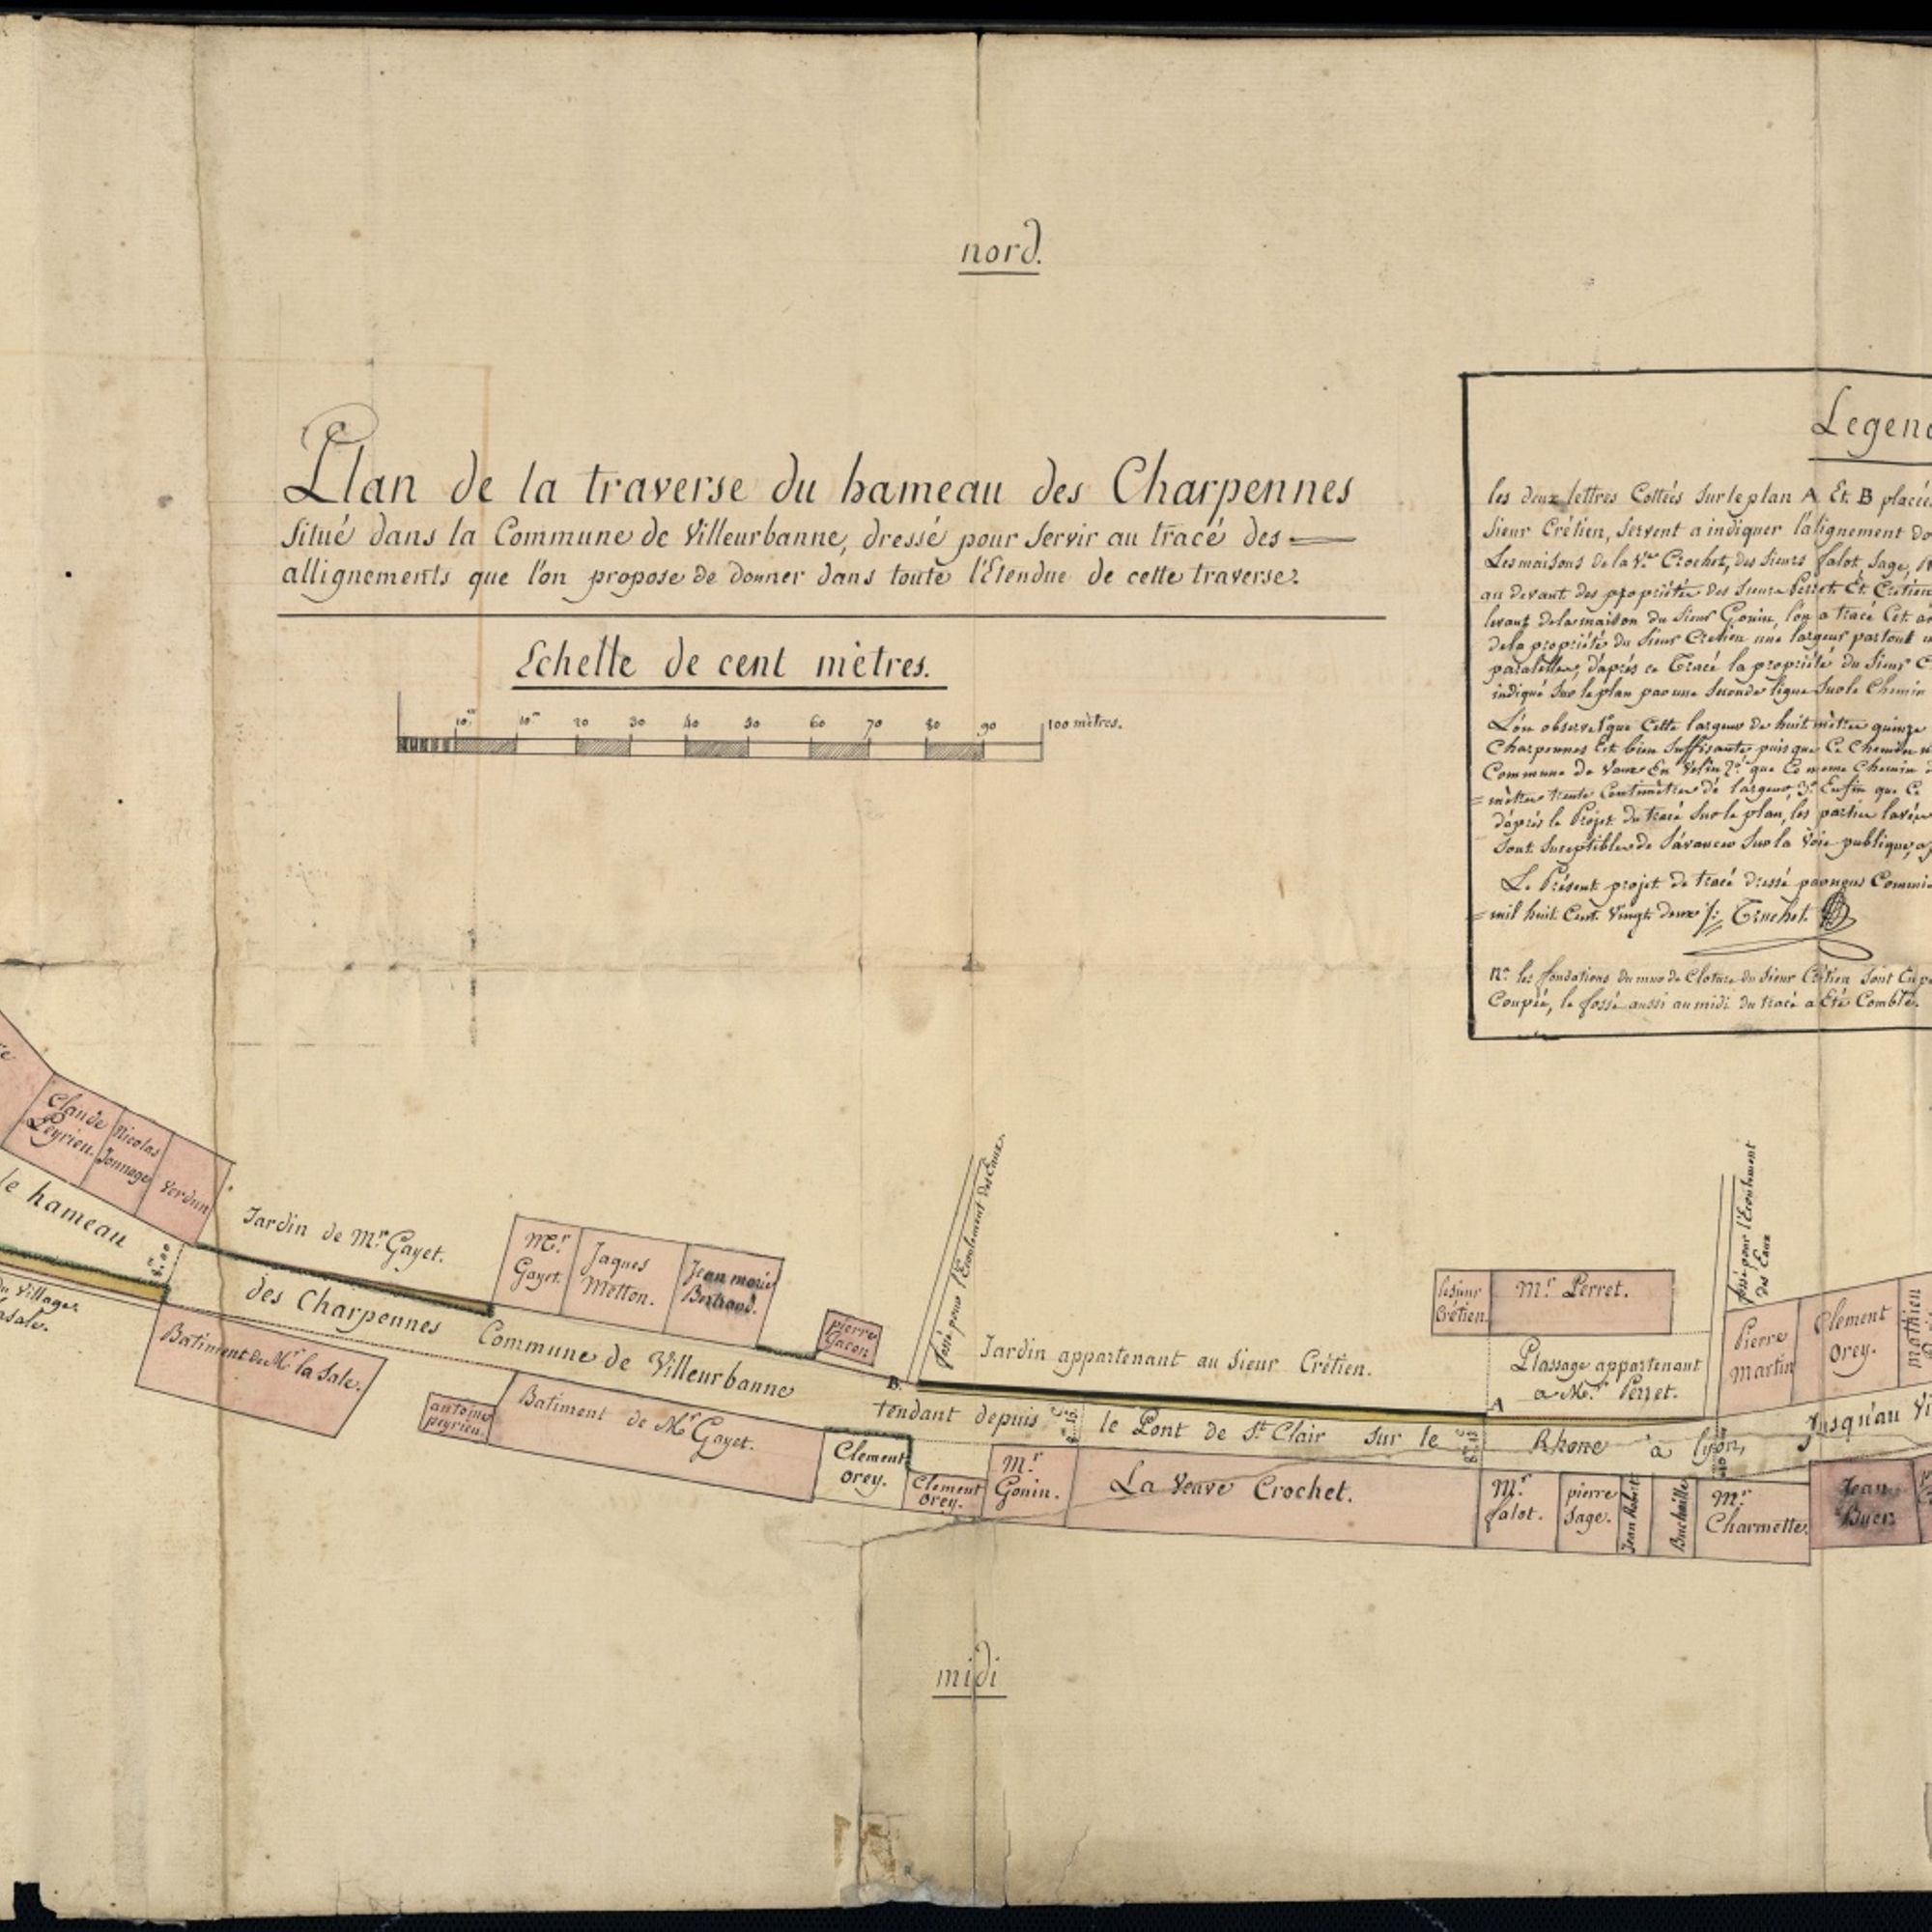 nord.
Plan de la traverse du hameau des Charpennes
Situé dans la Commune de Villeurbanne, dressé pour Servir au tracé des
allignements que l'on propose de donner dans toute l'Etendue de cette traverse.
Echelle de cent mètres.
10 10 20 30 40 50 60 70 80 90 100 mètres.
Legen
les deux lettres Cottées Sur le plan A Et B placées
Sieur Crétien, Servent a indiquer l'alignement do
Les maisons de la Vve Crochet, des Sieurs falot, Sage,
au devant des propriétés des Sieurs Perret Et Crétien
levant de la maison du Sieur Gonin, l'on a tracé Cet
de la propriété du Sieur Cretien une largeur partout
paralelles, d'après ce Tracé la propriété du Sieur C
indiqué Sur le plan par une Seconde ligne Sur le Chemin
L'on observe que Cette largeur de huit mètres quinze
Charpennes Est bien Suffisante puisque Ce Chemin
Commune de Vaux En Velin 2º que Ce meme Chemin
mètres trente Centimètres de largeur, 3º Enfin que Ce
d'après le Projet du tracé Sur le plan, les parties lavées
Sont Suceptibles de S'avancer Sur la Voie publique,
Le Présent projet de tracé dressé par nous Commi
mil huit Cent Vingt deux Truchet
nª les fondations du mur de Cloture du Sieur Crétien Sont
Coupée, le fossé aussi au midi du tracé a Eté Comblé.
Claude
Peyrieu.
Nicolas
Jonnage
Verdun
le hameau
Jardin de Mr Gayet.
Mr
Gayet.
Jaques
Metton.
Jean marie
Bertrand.
pierre
Gacon
fossé pour l'Ecoulement des Eaux.
Jardin appartenant au Sieur Crétien.
le Sieur
Crétien
Mr Perret.
Plassage appartenant
a Mr Perret.
fossé pour l'Ecoulement
des Eaux
Pierre
martin
Clement
Orey.
mathieu
du Village
Lasale.
8.00
des Charpennes Commune de Villeurbanne
B
tendant depuis
8.15
le Pont de St Clair Sur le
A
8.15
Rhone a lyon,
Jusqu'au Vi
Batiment de Mr la Sale.
antoine
peyrieu.
Batiment de Mr Gayet.
Clement
Orey.
Clement
Orey.
Mr
Gonin.
La Veuve Crochet.
Mr
falot.
pierre
Sage.
Jean Robert
Buchaille
Mr
Charmette.
Jean
Buer
midi